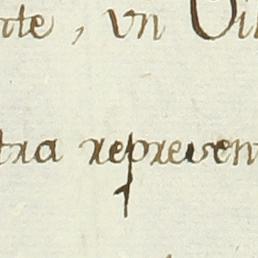 nte, vn Vi
tra represent